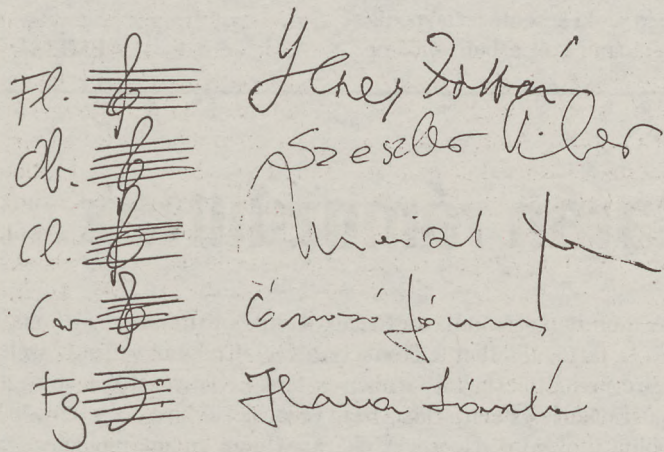 Fl. Jeney Zoltán
Ob. Szeszler Tibor
Cl. Meizl
Cor Onozó János
Fg Hara László